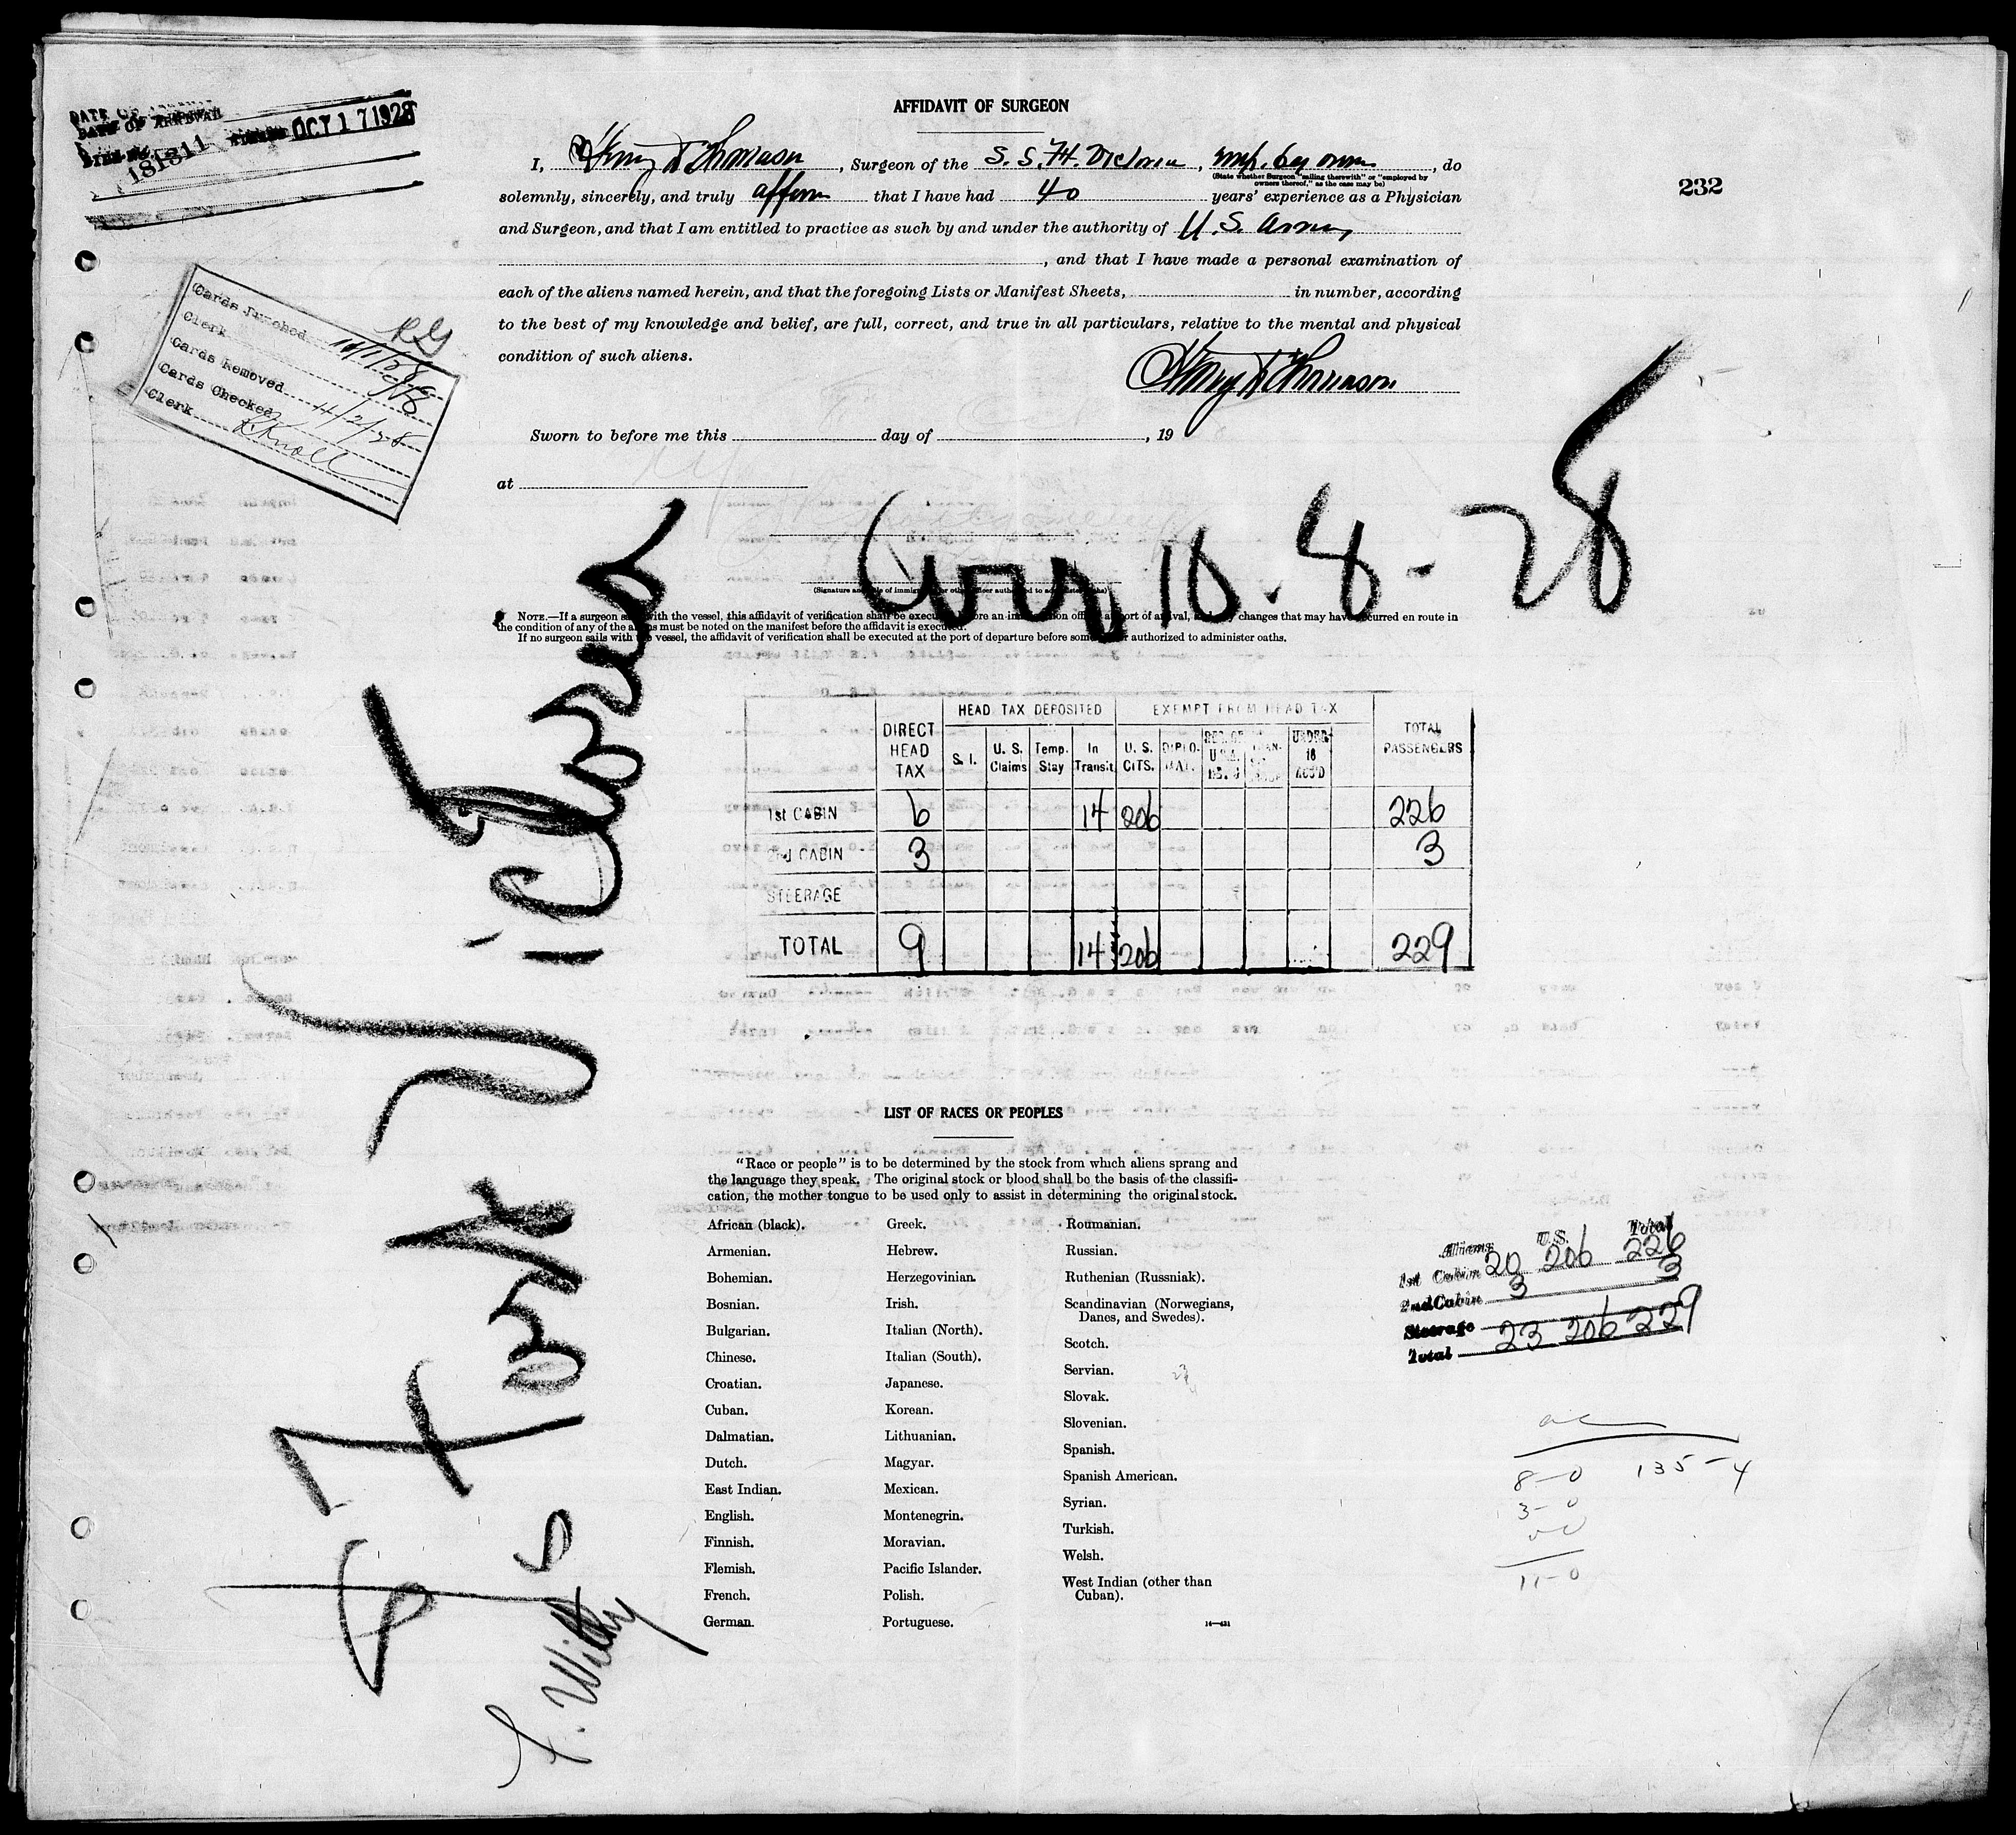 DATE OF ARRIVAL
181311 OCT 17 1928
232
Cards Punched 11/1/28
Clerk
Cards Removed
Cards Checked 11/2/28
Clerk Knoll
AFFIDAVIT OF SURGEON
I, Henry D Thomason, Surgeon of the S. S. Ft. Victoria, emp. by owners, do
(State whether Surgeon "sailing therewith" or "employed by
owners thereof," as the case may be)
solemnly, sincerely, and truly affirm that I have had 40 years' experience as a Physician
and Surgeon, and that I am entitled to practice as such by and under the authority of U. S. Army
, and that I have made a personal examination of
each of the aliens named herein, and that the foregoing Lists or Manifest Sheets, in number, according
to the best of my knowledge and belief, are full, correct, and true in all particulars, relative to the mental and physical
condition of such aliens.
Henry D Thomason
Sworn to before me this day of , 19
at
Arr 10-8-28
NOTE.—If a surgeon sails with the vessel, this affidavit of verification shall be executed before an immigration officer at port of arrival, and any changes that may have occurred en route in
the condition of any of the aliens must be noted on the manifest before the affidavit is executed.
If no surgeon sails with the vessel, the affidavit of verification shall be executed at the port of departure before some officer authorized to administer oaths.
SS Fort Victoria
HEAD TAX DEPOSITED EXEMPT FROM HEAD TAX
DIRECT HEAD TAX S. I. U. S. Claims Temp. Stay In Transit U. S. CITS. DIPLOMAT. UNDER 16 ACC'D TOTAL PASSENGERS
1st CABIN 6 14 206 226
2nd CABIN 3 3
STEERAGE
TOTAL 9 14 206 229
LIST OF RACES OR PEOPLES
"Race or people" is to be determined by the stock from which aliens sprang and
the language they speak. The original stock or blood shall be the basis of the classifi-
cation, the mother tongue to be used only to assist in determining the original stock.
African (black).
Armenian.
Bohemian.
Bosnian.
Bulgarian.
Chinese.
Croatian.
Cuban.
Dalmatian.
Dutch.
East Indian.
English.
Finnish.
Flemish.
French.
German.
Greek.
Hebrew.
Herzegovinian.
Irish.
Italian (North).
Italian (South).
Japanese.
Korean.
Lithuanian.
Magyar.
Mexican.
Montenegrin.
Moravian.
Pacific Islander.
Polish.
Portuguese.
Roumanian.
Russian.
Ruthenian (Russniak).
Scandinavian (Norwegians,
Danes, and Swedes).
Scotch.
Servian.
Slovak.
Slovenian.
Spanish.
Spanish American.
Syrian.
Turkish.
Welsh.
West Indian (other than
Cuban).
Aliens U.S. Total
1st Cabin 20 206 226
2nd Cabin 3 3
Steerage
Total 23 206 229
8-0 135-4
3-0
11-0